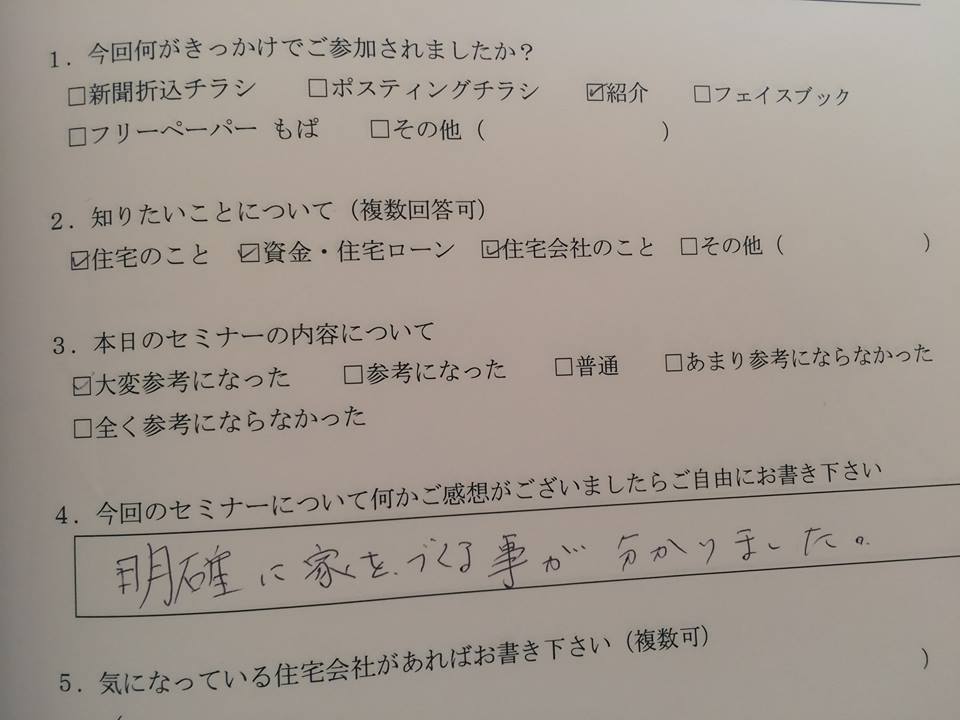 1．今回何がきっかけでご参加されましたか？
□新聞折込チラシ　□ポスティングチラシ　☑紹介　□フェイスブック
□フリーペーパー もぱ　□その他（　　　　　　　）
2．知りたいことについて（複数回答可）
☑住宅のこと　☑資金・住宅ローン　☑住宅会社のこと　□その他（　　　　　　）
3．本日のセミナーの内容について
☑大変参考になった　□参考になった　□普通　□あまり参考にならなかった
□全く参考にならなかった
4．今回のセミナーについて何かご感想がございましたらご自由にお書き下さい
明確に家を、づくる事が分かりました。
5．気になっている住宅会社があればお書き下さい（複数可）
（　　　　　　　　　　　　　　　　　　　　　）